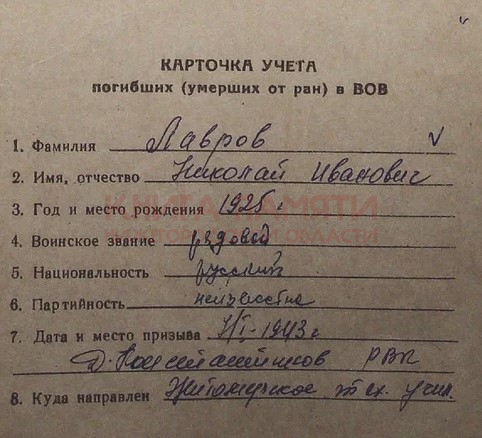 КАРТОЧКА УЧЕТА
погибших (умерших от ран) в ВОВ
1. Фамилия Лавров
2. Имя, отчество Николай Иванович
КНИГА ПАМЯТИ
3. Год и место рождения 1925
НИЖЕГОРОДСКОЙ ОБЛАСТИ
4. Воинское звание рядовой
5. Национальность русский
6. Партийность неизвестна
7. Дата и место призыва 7/I-1943 г
Д. Константинов РВК
8. Куда направлен Житомирское учил.